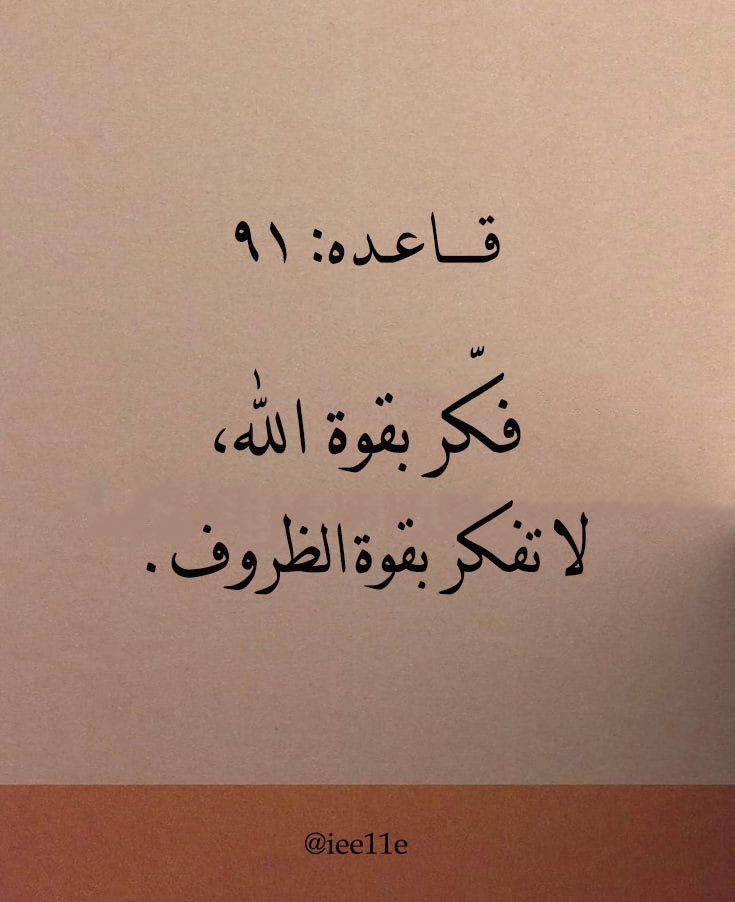 قـــاعـده: ٩١
فكّر بقوة الله،
لا تفكر بقوة الظروف .
@iee11e